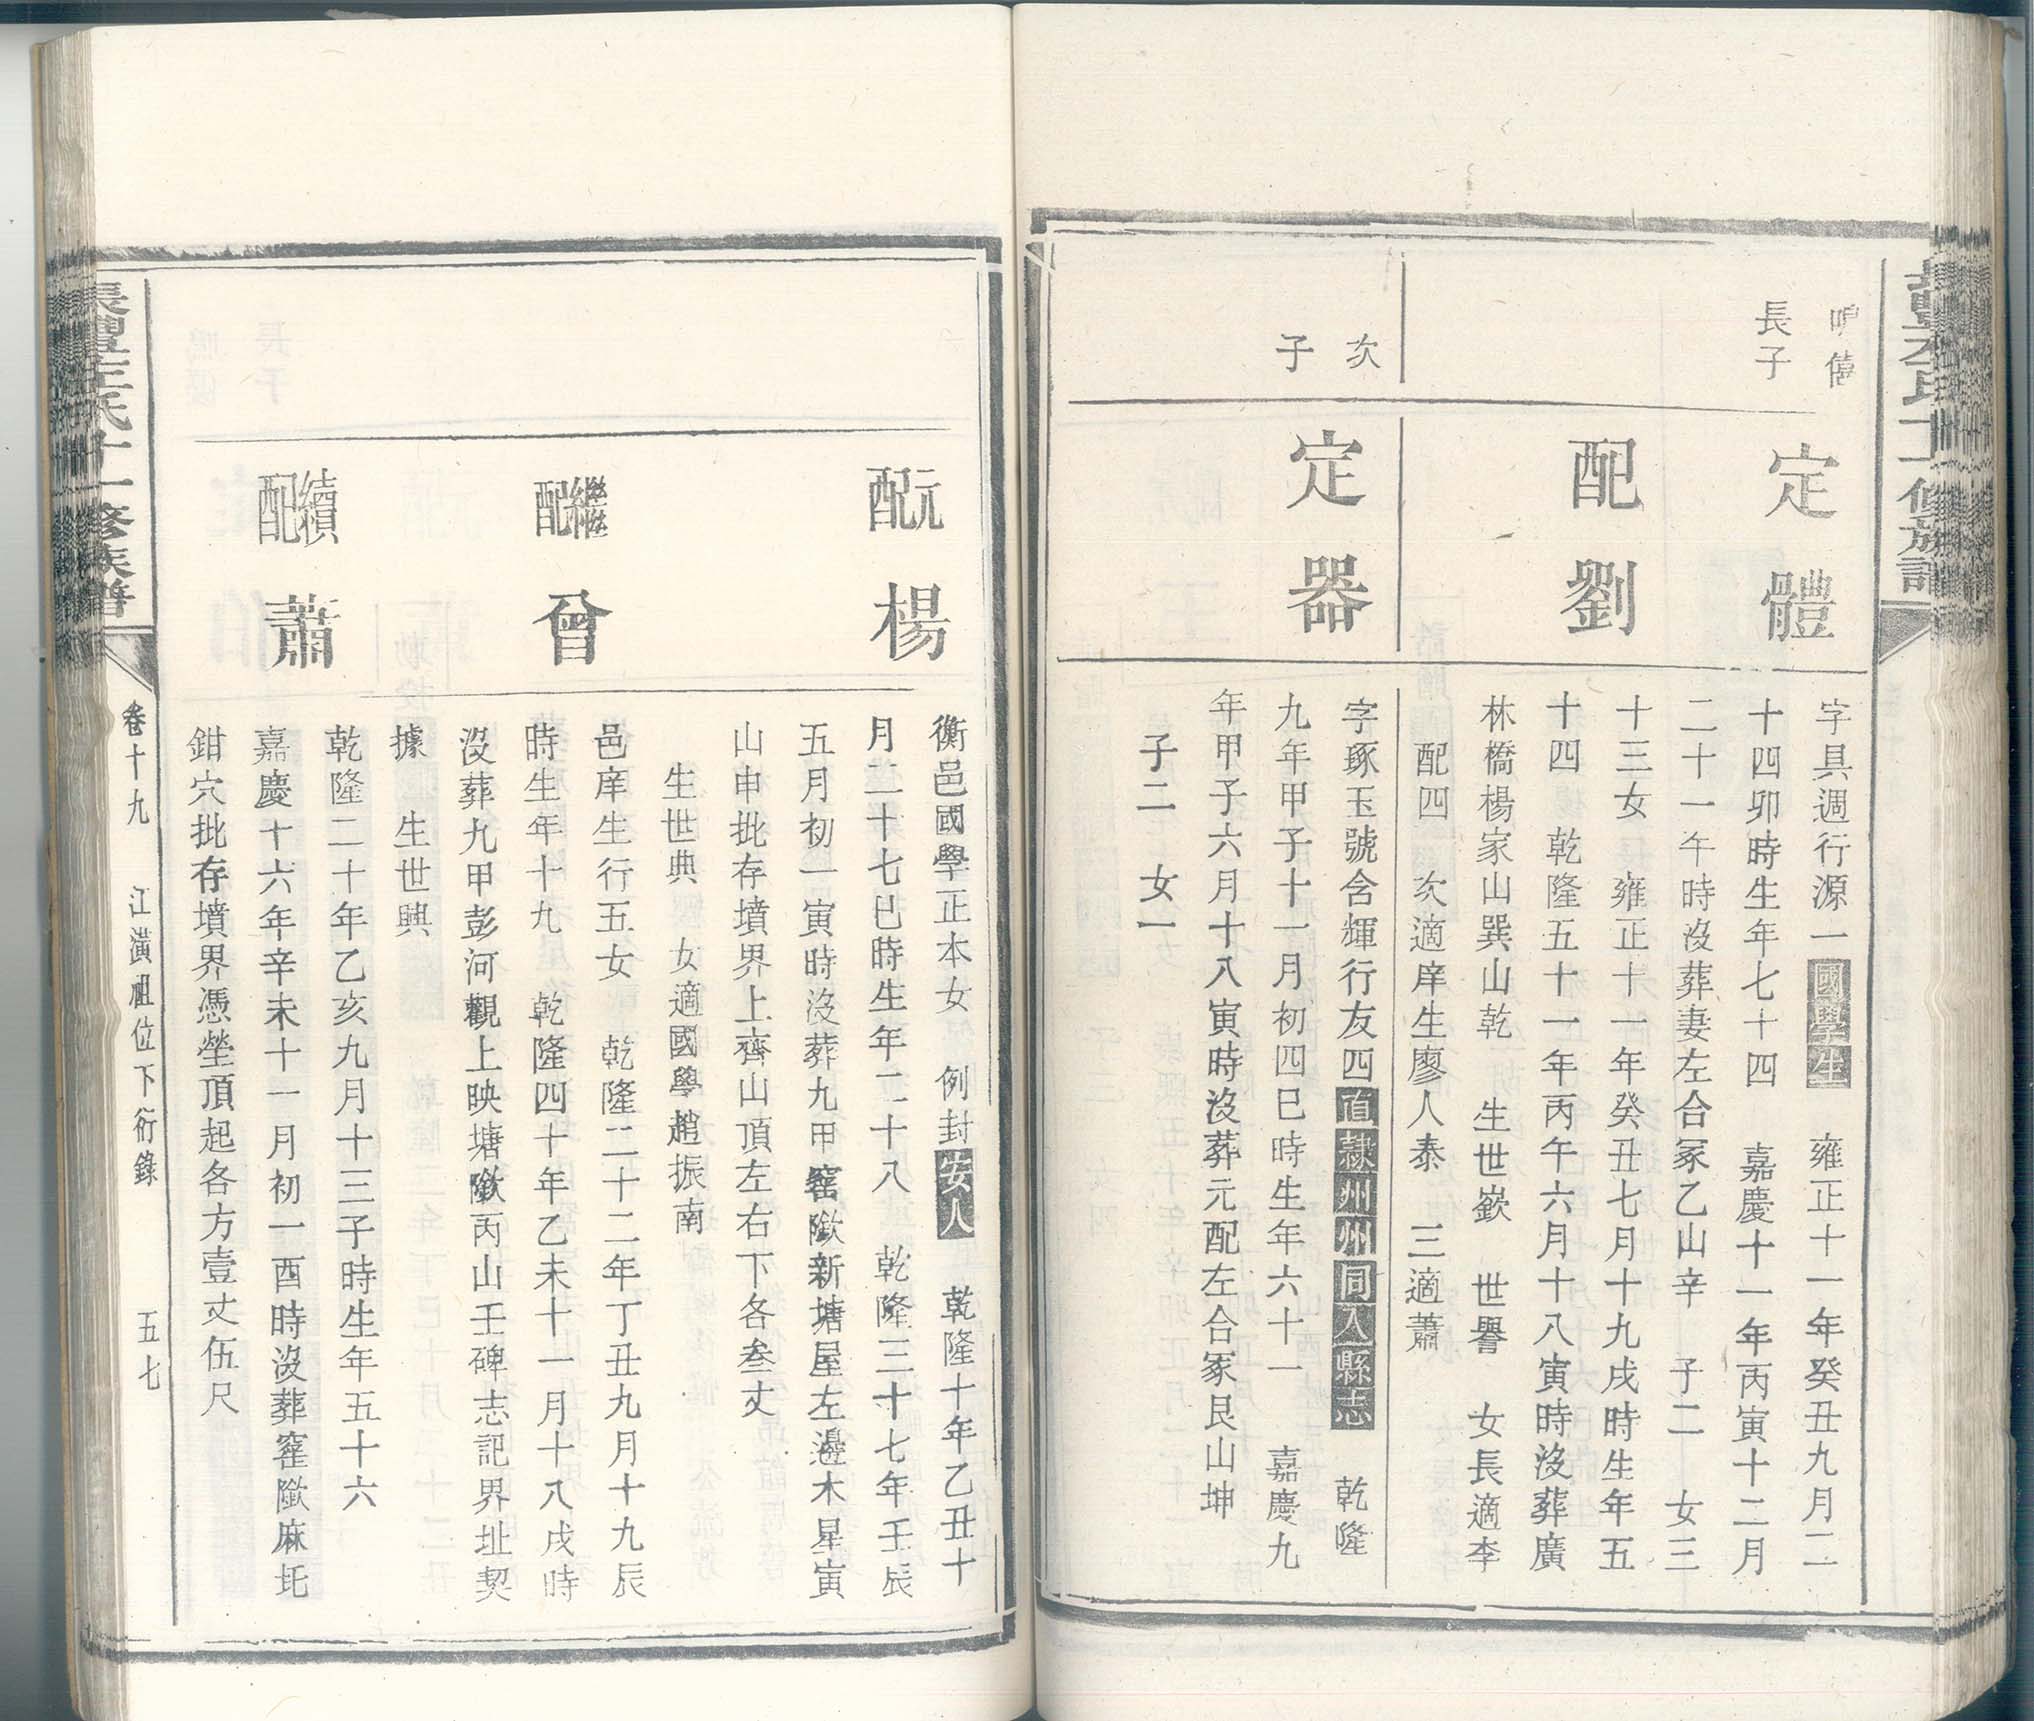 長子
定體
字具週行源一國學生　雍正十一年癸丑九月二
十四卯時生年七十四　嘉慶十一年丙寅十二月
二十一午時沒葬妻左合冢乙山辛　子二　女三
配劉
十三女　雍正十一年癸丑七月十九戌時生年五
十四　乾隆五十一年丙午六月十八寅時沒葬廣
林橋楊家山巽山乾　生世嶔　世譽　女長適李
配四　次適庠生廖人泰　三適蕭
次子
定器
字琢玉號含輝行友四直隸州州同入縣志　乾隆
九年甲子十一月初四巳時生年六十一　嘉慶九
年甲子六月十八寅時沒葬元配左合冢艮山坤
子二　女一
元配楊
衡邑國學正本女　例封安人　乾隆十年乙丑十
月二十七巳時生年二十八　乾隆三十七年壬辰
五月初一寅時沒葬九甲窰歘新塘屋左邊木星寅
山申批存墳界上齊山頂左右下各叁丈
生世典　女適國學趙振南
繼配曾
邑庠生行五女　乾隆二十二年丁丑九月十九辰
時生年十九　乾隆四十年乙未十一月十八戌時
沒葬九甲彭河觀上映塘歘丙山壬碑志記界址契
據　生世興
續配蕭
乾隆二十年乙亥九月十三子時生年五十六
嘉慶十六年辛未十一月初一酉時沒葬窰歘麻
鉗穴批存墳界憑塋頂起各方壹丈伍尺
氏十一修族譜
卷十九　江潢祖位下衍錄　五七